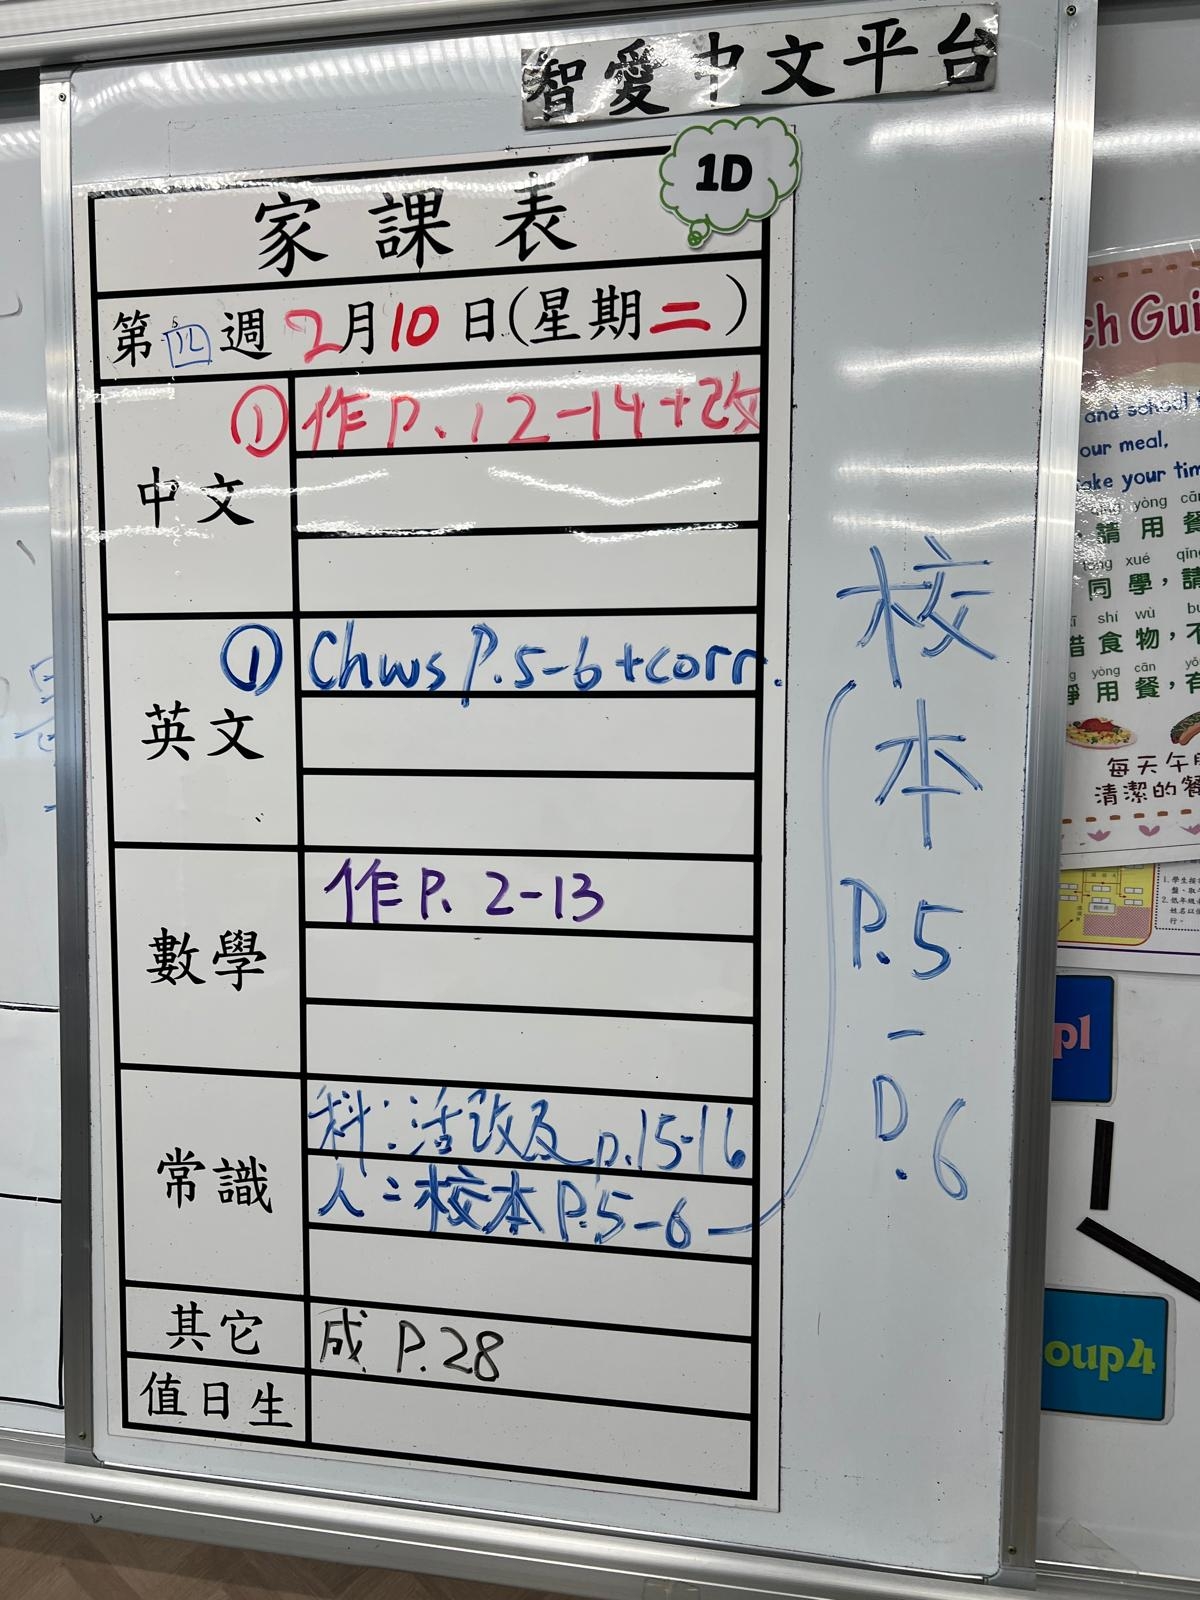 智愛中文平台
1D
家課表
第四週 2月10日(星期二)
中文
① 作P.12-14+改
英文
① Chws P.5-6+corr.
數學
作P. 2-13
常識
科:活改及p.15-16
人:校本P.5-6
其它
成 P.28
值日生
校本
P.5
-
P.6
ch Gui
and school
our meal,
ake your tim
yòng cān
請用餐
tóng xué qǐng
同學,請
xī shí wù bù
惜食物,不
yòng cān yǒ
淨用餐,有
每天午
清潔的餐
p1
oup4